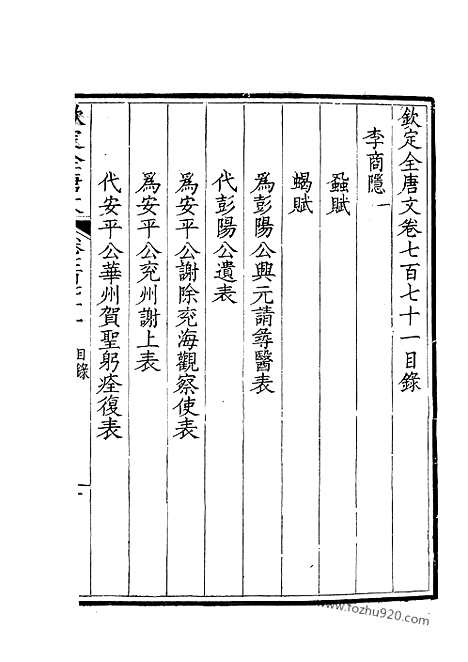 欽定全唐文卷七百七十一目錄
李商隱一
蝨賦
蝎賦
爲彭陽公興元請尋醫表
代彭陽公遺表
爲安平公謝除兖海觀察使表
爲安平公兖州謝上表
代安平公華州賀聖躬痊復表
欽定全唐文
卷七百七十一
目錄
一
www.fozhu920.com